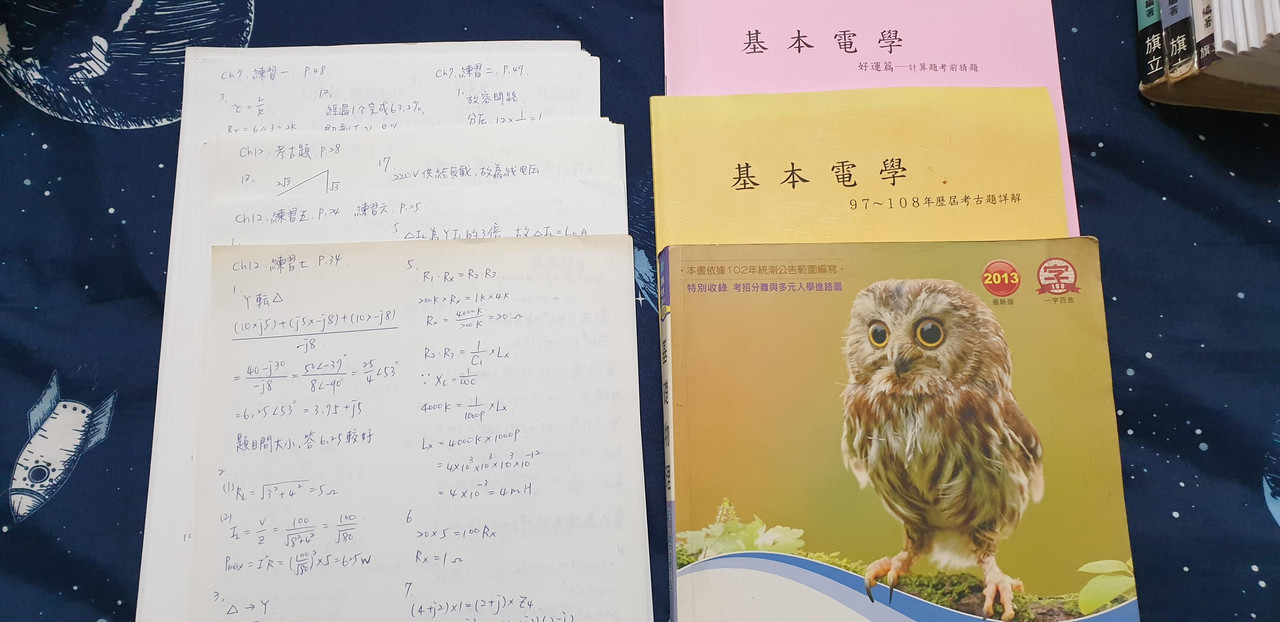 Ch9. 練習一 P.48
3.
τ = L/R
Rx = 6//3 = 2K
12.
經過1τ完成63.2%
Ch9. 練習二 P.49.
1.
放容問題
分压. 12×1/ = 1
Ch12. 考古題 P.28
12.
2√3
√3
17
220V供給負載,故為線电压
Ch12. 練習五. P.24 練習六. P.25
1.
5.
△IL為YIL的3倍,故△IL=60A
Ch12. 練習七. P.34
1.
Y転△
(10×j5)+(j5×-j8)+(10×-j8)/-j8
= 40-j30/-j8 = 50∠-37°/8∠-90° = 25/4∠53°
=6.25∠53° = 3.75+j5
題目問大小,答6.25較好.
2
(1) RL = √3²+4² = 5Ω
(2)
IL = V/Z = 100/√8²+4² = 100/√80
Pmax = I²R = (100/√80)²×5 = 625W
3.
△→Y
5.
R1·Rx = R2·R3
200K×Rx = 1K×4K
Rx = 4000K/200K = 20Ω
R2·R3 = 1/C1×Lx
∵ XC = 1/ωC
4000K = 1/1000P×Lx
Lx = 4000K×1000P
= 4×10³×10³×10³×10⁻¹²
= 4×10⁻³ = 4mH
6.
20×5 = 100Rx
Rx = 1Ω
7.
(4+j2)×1 = (2+j)×Z4
基本電學
好運篇─計算題考前猜題
基本電學
97~108年歷屆考古題詳解
・本書依據102年統測公告範圍編寫・
特別收錄 考招分離與多元入學進路圖
2013
最新版
字
108
一字百金
編著
旗立
編著
旗立
編著